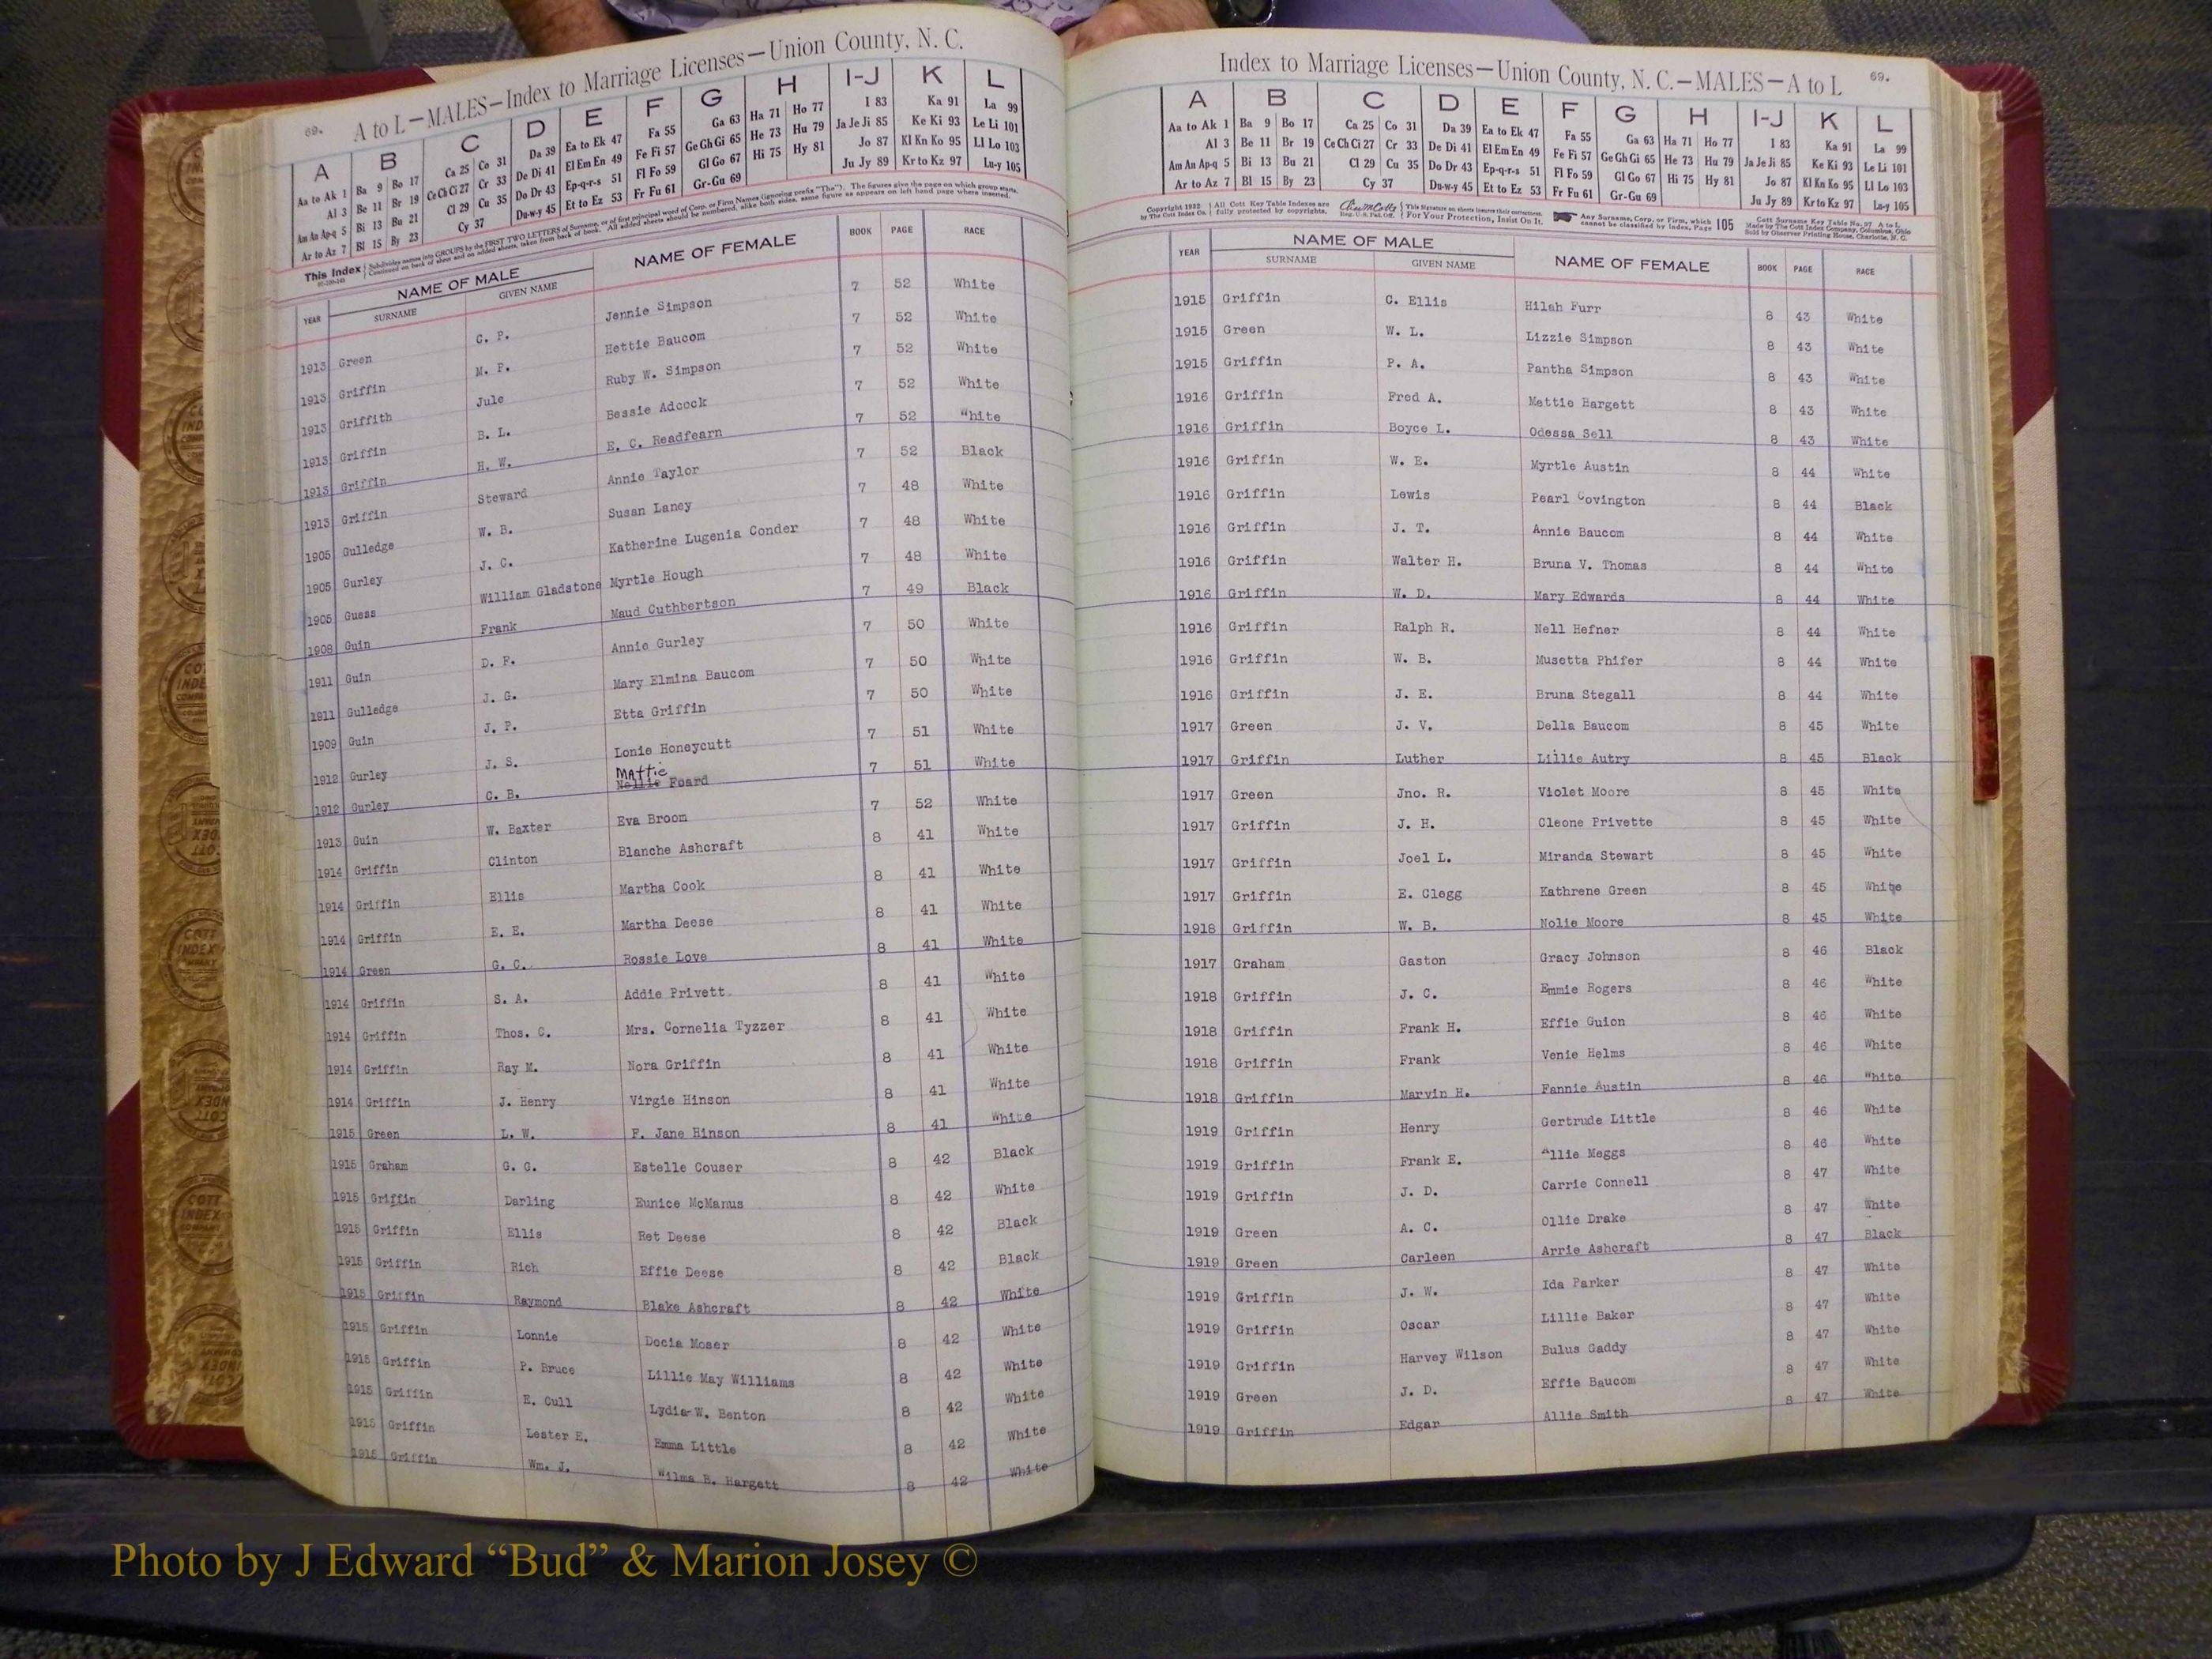 69.
A to L—MALES—Index to Marriage Licenses—Union County, N. C.
A B C D E F G H I-J K L
Aa to Ak 1 Ba 9 Bo 17 Ca 25 Co 31 Da 39 Ea to Ek 47 Fa 55 Ga 63 Ha 71 Ho 77 I 83 Ka 91 La 99
Al 3 Be 11 Br 19 Ce Ch Ci 27 Cr 33 De Di 41 El Em En 49 Fe Fi 57 Ge Gh Gi 65 He 73 Hu 79 Ja Je Ji 85 Ke Ki 93 Le Li 101
Am An Ap-q 5 Bi 13 Bu 21 Cl 29 Cu 35 Do Dr 43 Ep-q-r-s 51 Fl Fo 59 Gl Go 67 Hi 75 Hy 81 Jo 87 Kl Kn Ko 95 Ll Lo 103
Ar to Az 7 Bl 15 By 23 Cy 37 Du-w-y 45 Et to Ez 53 Fr Fu 61 Gr-Gu 69 Ju Jy 89 Kr to Kz 97 Lu-y 105
This Index Subdivides names into GROUPS by the FIRST TWO LETTERS of Surname, or of first principal word of Corp. or Firm Names (ignoring prefix "The"). The figures give the page on which group starts.
Continued on back of sheet and on added sheets, taken from back of book. All added sheets should be numbered, alike both sides, same figure as appears on left hand page where inserted.
YEAR NAME OF MALE SURNAME GIVEN NAME NAME OF FEMALE BOOK PAGE RACE
1913 Green C. P. Jennie Simpson 7 52 White
1913 Griffin M. P. Hettie Baucom 7 52 White
1913 Griffith Jule Ruby W. Simpson 7 52 White
1913 Griffin B. L. Bessie Adcock 7 52 White
1913 Griffin H. W. E. C. Readfearn 7 52 White
1913 Griffin Steward Annie Taylor 7 52 Black
1905 Gulledge W. B. Susan Laney 7 48 White
1905 Gurley J. C. Katherine Lugenia Conder 7 48 White
1905 Guess William Gladstone Myrtle Hough 7 48 White
1908 Guin Frank Maud Cuthbertson 7 49 Black
1911 Guin D. F. Annie Gurley 7 50 White
1911 Gulledge J. G. Mary Elmina Baucom 7 50 White
1909 Guin J. P. Etta Griffin 7 50 White
1912 Gurley J. S. Lonie Honeycutt 7 51 White
Mattie
1912 Gurley C. B. Nellie Foard 7 51 White
1913 Guin W. Baxter Eva Broom 7 52 White
1914 Griffin Clinton Blanche Ashcraft 8 41 White
1914 Griffin Ellis Martha Cook 8 41 White
1914 Griffin E. E. Martha Deese 8 41 White
1914 Green G. C. Rossie Love 8 41 White
1914 Griffin S. A. Addie Privett 8 41 White
1914 Griffin Thos. C. Mrs. Cornelia Tyzzer 8 41 White
1914 Griffin Ray M. Nora Griffin 8 41 White
1914 Griffin J. Henry Virgie Hinson 8 41 White
1915 Green L. W. F. Jane Hinson 8 41 White
1915 Graham G. G. Estelle Couser 8 42 Black
1915 Griffin Darling Eunice McManus 8 42 White
1915 Griffin Ellis Ret Deese 8 42 Black
1915 Griffin Rich Effie Deese 8 42 Black
1915 Griffin Raymond Blake Ashcraft 8 42 White
1915 Griffin Lonnie Docia Moser 8 42 White
1915 Griffin P. Bruce Lillie May Williams 8 42 White
1915 Griffin E. Cull Lydia W. Benton 8 42 White
1915 Griffin Lester E. Emma Little 8 42 White
1915 Griffin Wm. J. Wilma B. Hargett 8 42 White
Index to Marriage Licenses—Union County, N. C.—MALES—A to L 69.
A B C D E F G H I-J K L
Aa to Ak 1 Ba 9 Bo 17 Ca 25 Co 31 Da 39 Ea to Ek 47 Fa 55 Ga 63 Ha 71 Ho 77 I 83 Ka 91 La 99
Al 3 Be 11 Br 19 Ce Ch Ci 27 Cr 33 De Di 41 El Em En 49 Fe Fi 57 Ge Gh Gi 65 He 73 Hu 79 Ja Je Ji 85 Ke Ki 93 Le Li 101
Am An Ap-q 5 Bi 13 Bu 21 Cl 29 Cu 35 Do Dr 43 Ep-q-r-s 51 Fl Fo 59 Gl Go 67 Hi 75 Hy 81 Jo 87 Kl Kn Ko 95 Ll Lo 103
Ar to Az 7 Bl 15 By 23 Cy 37 Du-w-y 45 Et to Ez 53 Fr Fu 61 Gr-Gu 69 Ju Jy 89 Kr to Kz 97 Lu-y 105
Copyright 1922 by The Cott Index Co. All Cott Key Table Indexes are fully protected by copyrights. Reg. U.S. Pat. Off. This Signature on sheets insures their correctness. For Your Protection, Insist On It. Any Surname, Corp. or Firm, which cannot be classified by Index, Page 105 Cott Surname Key Table No. 97 A to L Made by The Cott Index Company, Columbus, Ohio Sold by Observer Printing House, Charlotte, N. C.
YEAR NAME OF MALE SURNAME GIVEN NAME NAME OF FEMALE BOOK PAGE RACE
1915 Griffin C. Ellis Hilah Furr 8 43 White
1915 Green W. L. Lizzie Simpson 8 43 White
1915 Griffin P. A. Pantha Simpson 8 43 White
1916 Griffin Fred A. Mettie Hargett 8 43 White
1916 Griffin Boyce L. Odessa Sell 8 43 White
1916 Griffin W. E. Myrtle Austin 8 44 White
1916 Griffin Lewis Pearl Covington 8 44 Black
1916 Griffin J. T. Annie Baucom 8 44 White
1916 Griffin Walter H. Bruna V. Thomas 8 44 White
1916 Griffin W. D. Mary Edwards 8 44 White
1916 Griffin Ralph R. Nell Hefner 8 44 White
1916 Griffin W. B. Musetta Phifer 8 44 White
1916 Griffin J. E. Bruna Stegall 8 44 White
1917 Green J. V. Della Baucom 8 45 White
1917 Griffin Luther Lillie Autry 8 45 Black
1917 Green Jno. R. Violet Moore 8 45 White
1917 Griffin J. H. Cleone Privette 8 45 White
1917 Griffin Joel L. Miranda Stewart 8 45 White
1917 Griffin E. Clegg Kathrene Green 8 45 White
1918 Griffin W. B. Nolie Moore 8 45 White
1917 Graham Gaston Gracy Johnson 8 46 Black
1918 Griffin J. C. Emmie Rogers 8 46 White
1918 Griffin Frank H. Effie Guion 8 46 White
1918 Griffin Frank Venie Helms 8 46 White
1918 Griffin Marvin H. Fannie Austin 8 46 White
1919 Griffin Henry Gertrude Little 8 46 White
1919 Griffin Frank E. Allie Meggs 8 46 White
1919 Griffin J. D. Carrie Connell 8 47 White
1919 Green A. C. Ollie Drake 8 47 White
1919 Green Carleen Arrie Ashcraft 8 47 Black
1919 Griffin J. W. Ida Parker 8 47 White
1919 Griffin Oscar Lillie Baker 8 47 White
1919 Griffin Harvey Wilson Bulus Gaddy 8 47 White
1919 Green J. D. Effie Baucom 8 47 White
1919 Griffin Edgar Allie Smith 8 47 White
Photo by J Edward “Bud” & Marion Josey ©